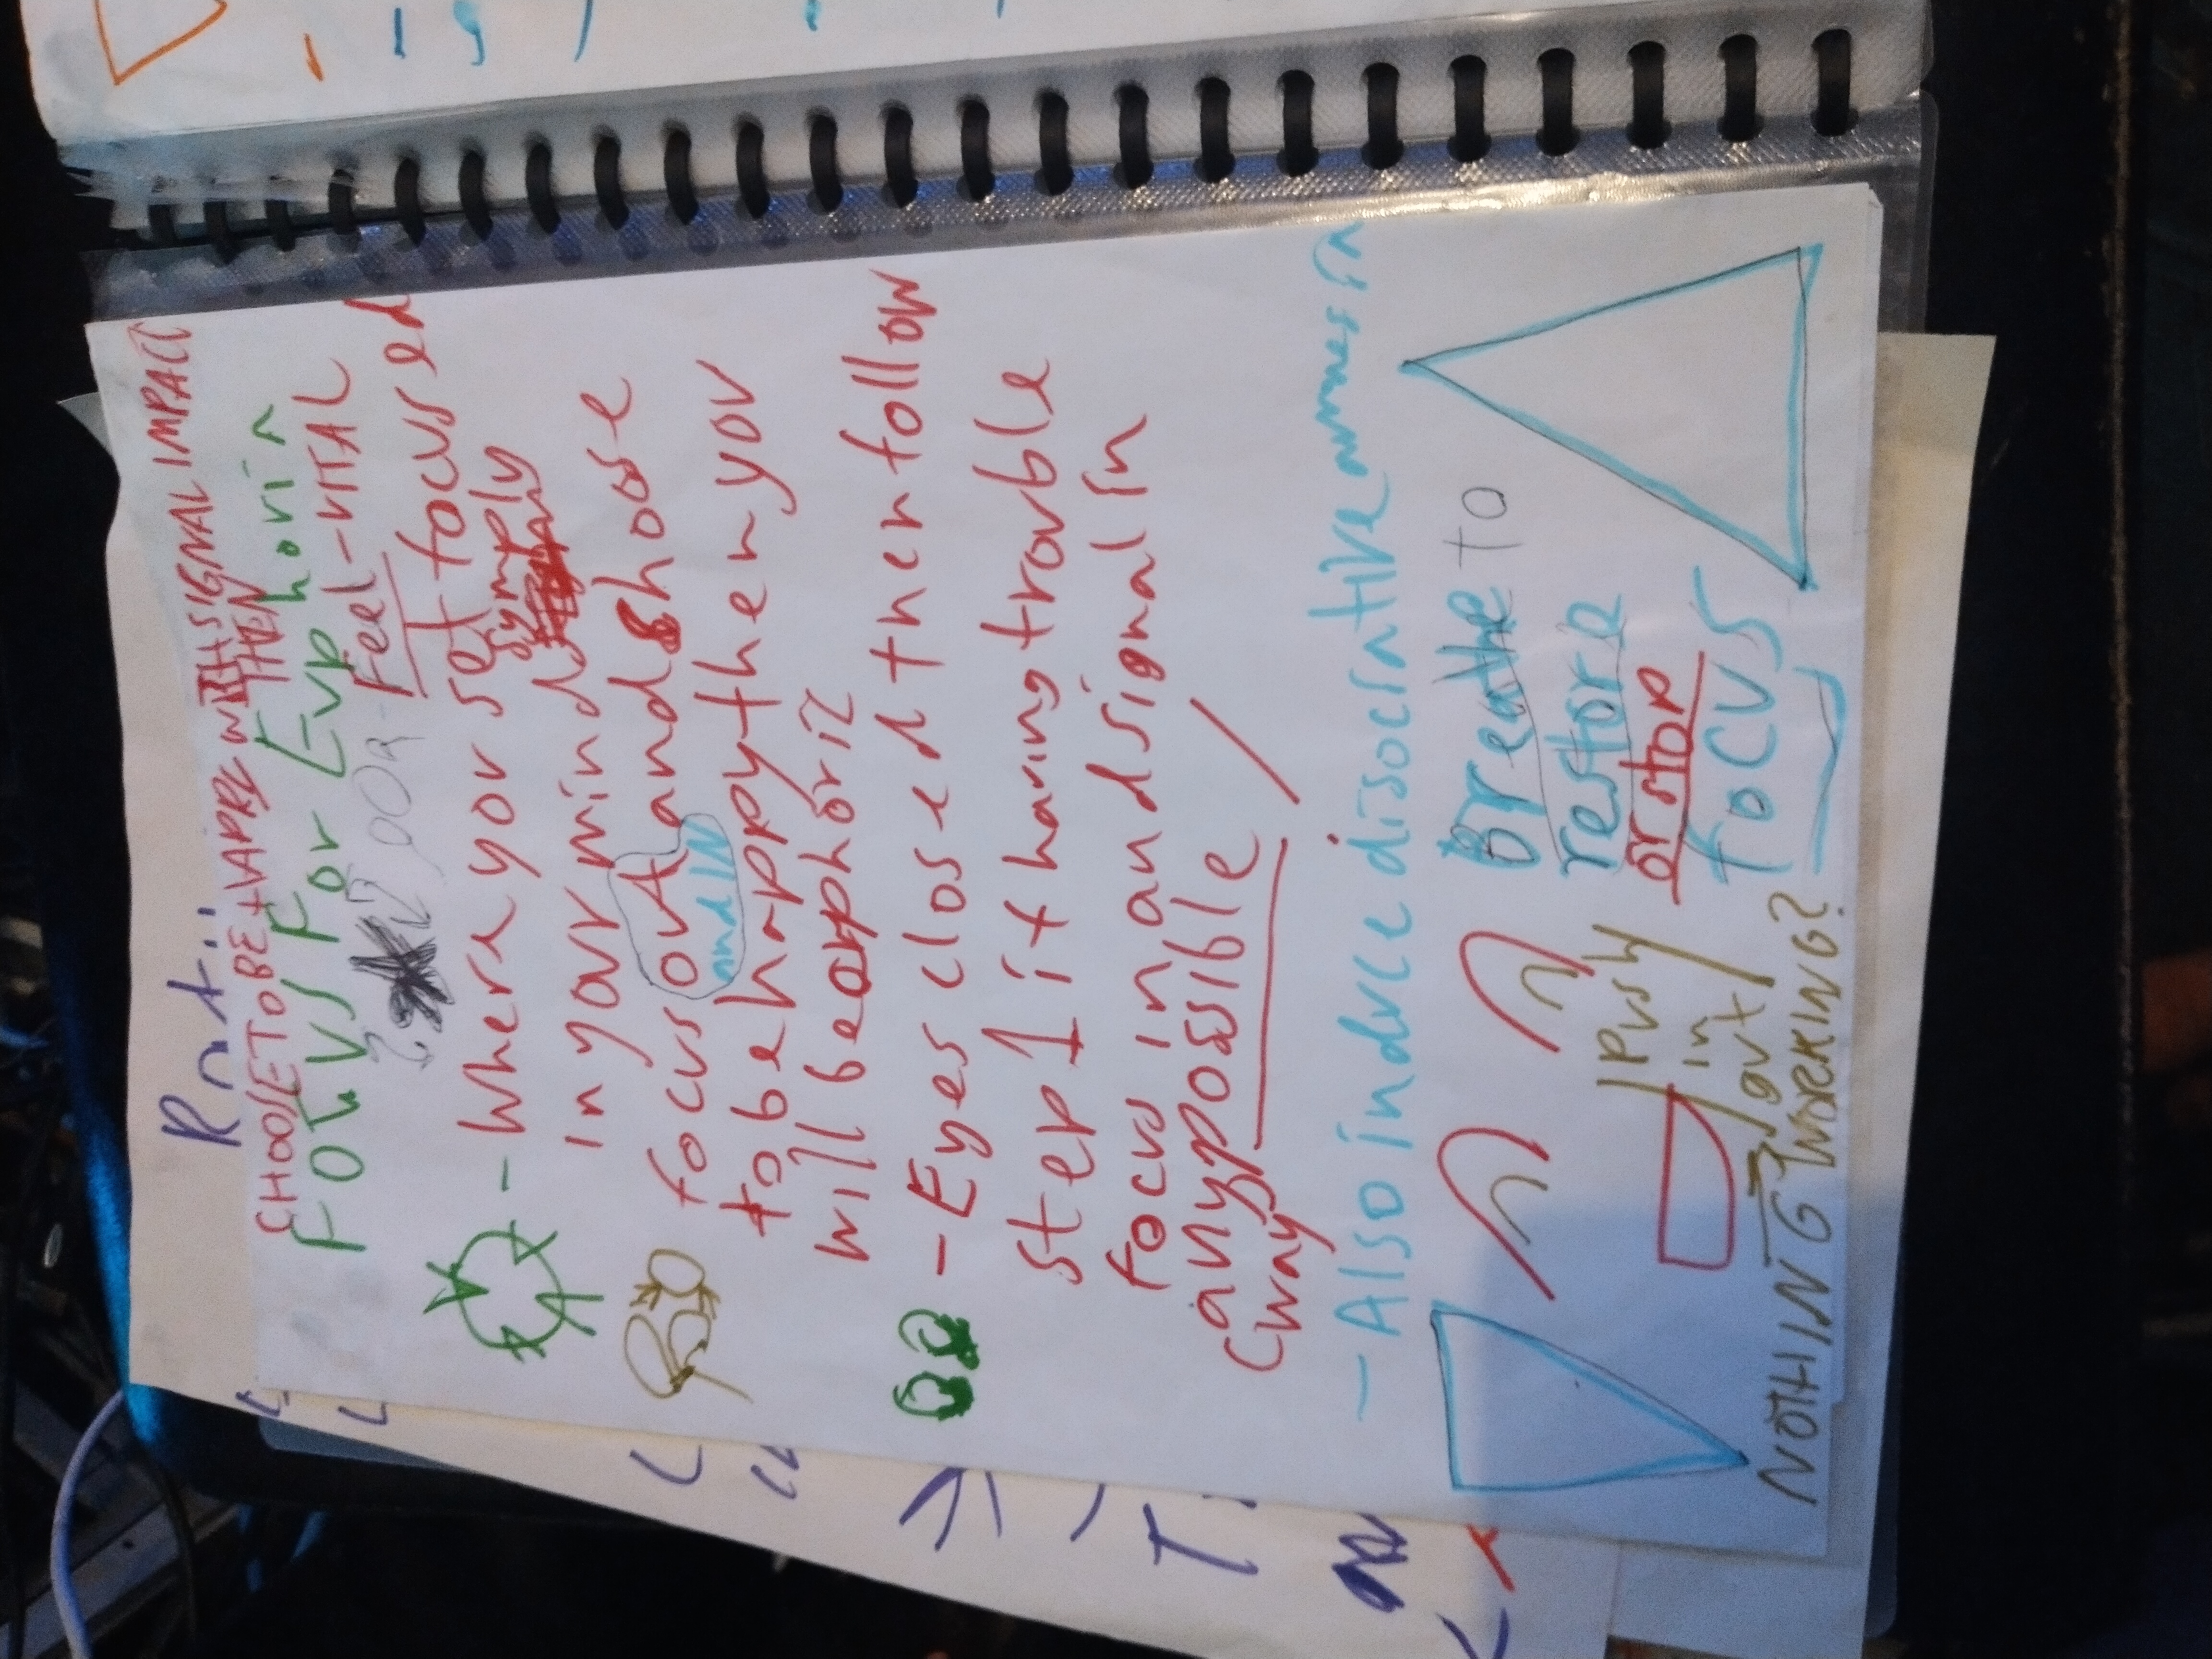 CHOOSE TO BE + VAPRE WITH SIGNAL IMPACT
THEN
FOCUS For Euphoria
Feel - VITAL
- Where your set focused
in your mind simply
focus out and shose
and IN
to be happy then you
will be euphoric
- Eyes closed then follow
step 1 if having trouble
focus in and signal in
any possible
(way)
- Also induce disocrative awarness in
Breathe to
restore
or stop
focus
Push
in
out
NOTHING WORKING?